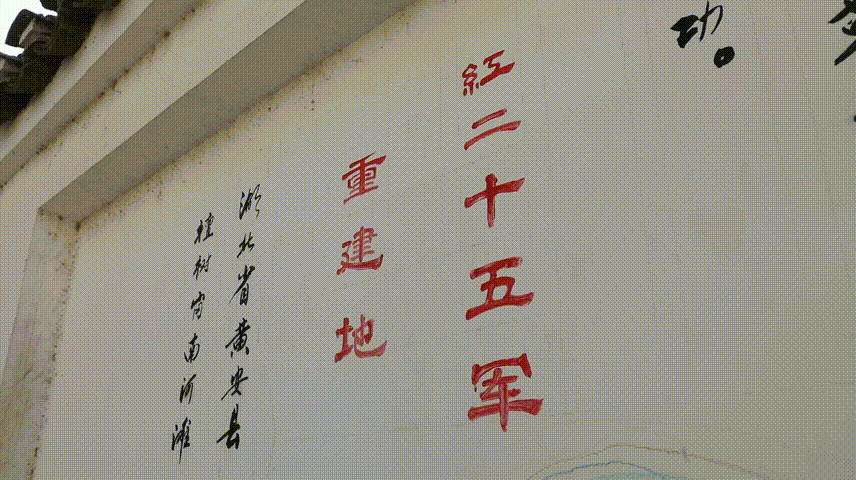 功。
紅二十五军
重建地
湖北省黄安县
檀树岗南河滩